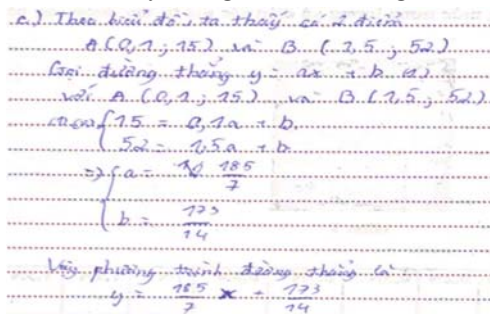 c) Theo biểu đồ, ta thấy có 2 điểm
A (0,1 ; 15) và B (1,5 ; 52)
Gọi đường thẳng y = ax + b (1)
với A (0,1 ; 15) và B (1,5 ; 52)
{ 15 = 0,1a + b
52 = 1,5a + b
=> { a = 185/7
b = 173/14
Vậy phương trình đường thẳng là
y = 185/7 x + 173/14